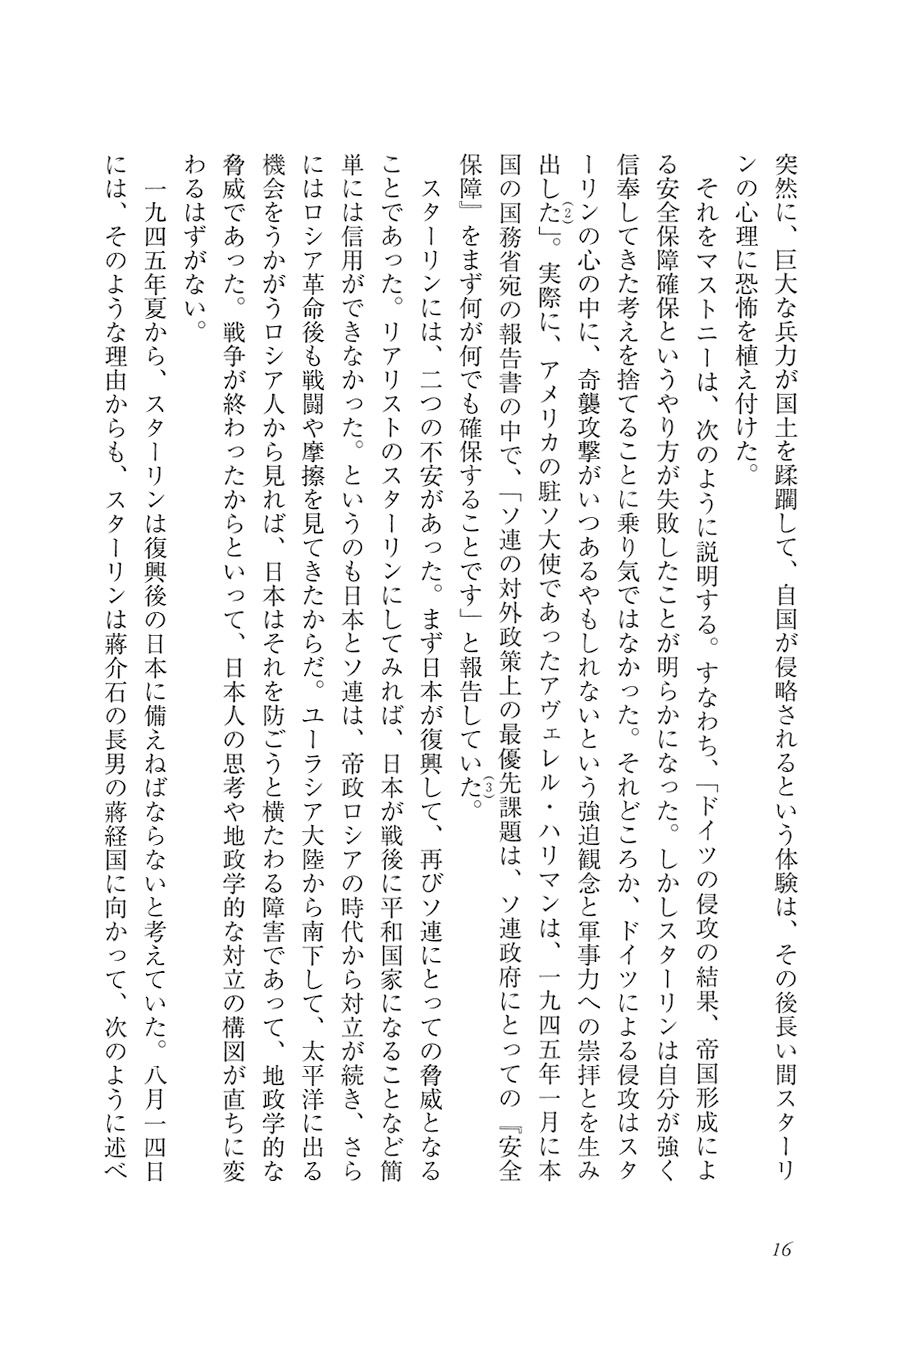 突然に、巨大な兵力が国土を蹂躙して、自国が侵略されるという体験は、その後長い間スターリ
ンの心理に恐怖を植え付けた。
それをマストニーは、次のように説明する。すなわち、「ドイツの侵攻の結果、帝国形成によ
る安全保障確保というやり方が失敗したことが明らかになった。しかしスターリンは自分が強く
信奉してきた考えを捨てることに乗り気ではなかった。それどころか、ドイツによる侵攻はスタ
ーリンの心の中に、奇襲攻撃がいつあるやもしれないという強迫観念と軍事力への崇拝とを生み
出した(2)」。実際に、アメリカの駐ソ大使であったアヴェレル・ハリマンは、一九四五年一月に本
国の国務省宛の報告書の中で、「ソ連の対外政策上の最優先課題は、ソ連政府にとっての『安全
保障』をまず何が何でも確保することです」と報告していた(3)。
スターリンには、二つの不安があった。まず日本が復興して、再びソ連にとっての脅威となる
ことであった。リアリストのスターリンにしてみれば、日本が戦後に平和国家になることなど簡
単には信用ができなかった。というのも日本とソ連は、帝政ロシアの時代から対立が続き、さら
にはロシア革命後も戦闘や摩擦を見てきたからだ。ユーラシア大陸から南下して、太平洋に出る
機会をうかがうロシア人から見れば、日本はそれを防ごうと横たわる障害であって、地政学的な
脅威であった。戦争が終わったからといって、日本人の思考や地政学的な対立の構図が直ちに変
わるはずがない。
一九四五年夏から、スターリンは復興後の日本に備えねばならないと考えていた。八月一四日
には、そのような理由からも、スターリンは蔣介石の長男の蔣経国に向かって、次のように述べ
16